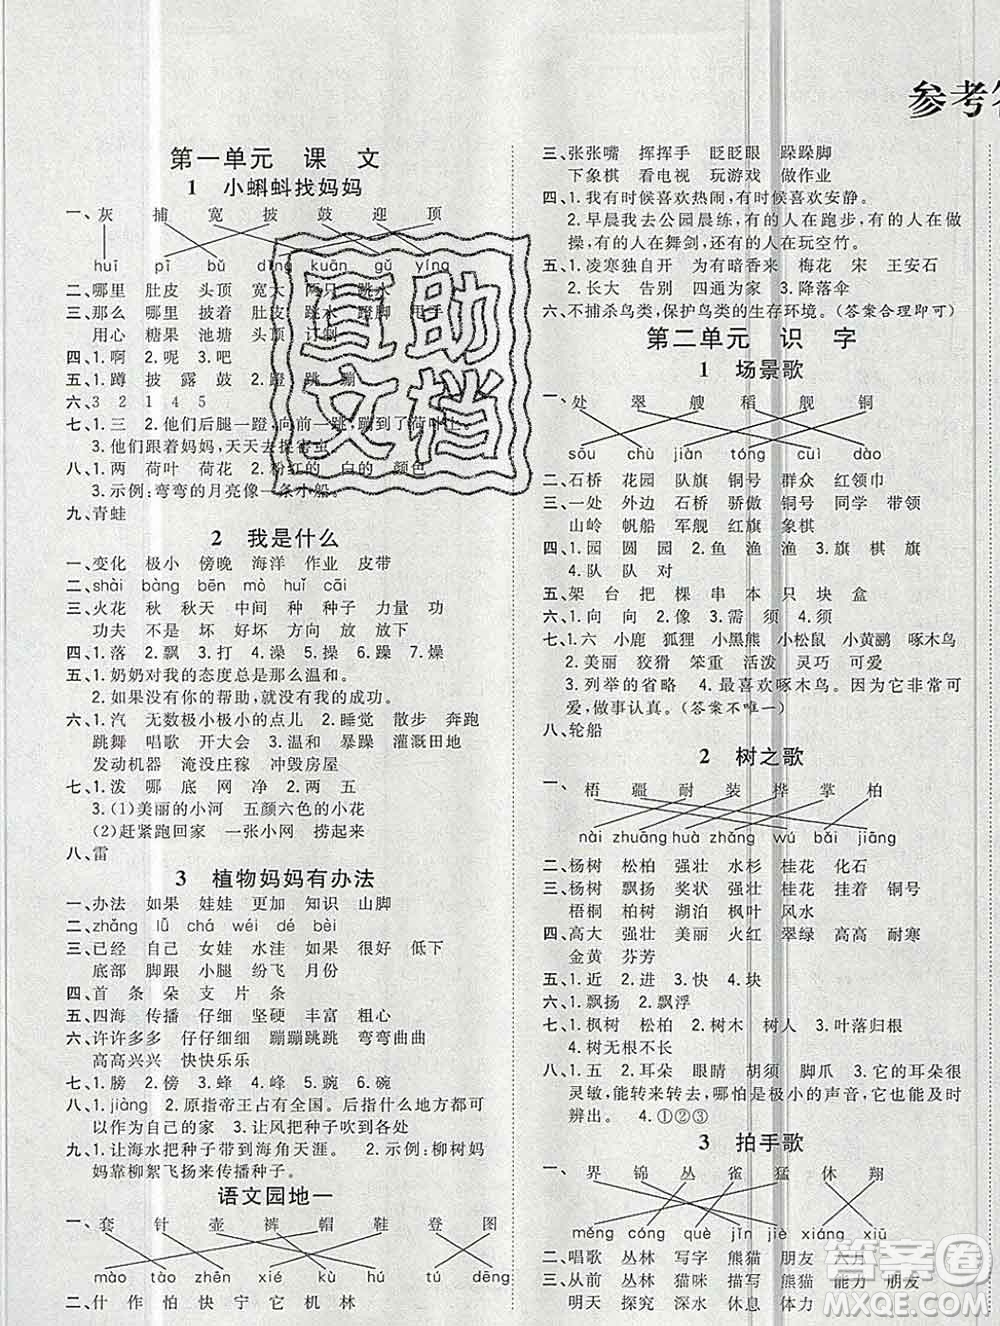 参考答
第一单元 课 文
1 小蝌蚪找妈妈
一、灰 捕 宽 披 鼓 迎 顶
huī pī bǔ dǐng kuān gǔ yíng
二、哪里 肚皮 头顶 宽大 两只 跳水
三、那么 哪里 披着 肚皮 跳水 蹬脚 甩手
用心 糖果 池塘 肚子 订制
四、1.啊 2.呢 3.吧
五、1.蹲 披 露 鼓 2.蹬 跳 蹦
六、3 2 1 4 5
七、1.三 2.他们后腿一蹬,向前一跳,蹦到了荷叶上。
3.他们跟着妈妈,天天去捉害虫
八、1.两 荷叶 荷花 2.粉红的 白的 颜色
3.示例:弯弯的月亮像一条小船。
九、青蛙
2 我是什么
一、变化 极小 傍晚 海洋 作业 皮带
二、shài bàng bēn mò huǐ cāi
三、火花 秋 秋天 中间 种 种子 力量 功
功夫 不是 坏 好坏 方向 放 放下
四、1.落 2.飘 3.打 4.澡 5.操 6.躁 7.燥
五、1.奶奶对我的态度总是那么温和。
2.如果没有你的帮助,就没有我的成功。
六、1.汽 无数极小极小的点儿 2.睡觉 散步 奔跑
跳舞 唱歌 开大会 3.温和 暴躁 灌溉田地
发动机器 淹没庄稼 冲毁房屋
七、1.泼 哪 底 网 净 2.两 五
3.(1)美丽的小河 五颜六色的小花
(2)赶紧跑回家 一张小网 捞起来
八、雷
3 植物妈妈有办法
一、办法 如果 娃娃 更加 知识 山脚
二、zhǎng lǚ chá wéi dé bèi
三、已经 自己 女娃 水洼 如果 很好 低下
底部 脚跟 小腿 纷飞 月份
四、首 条 朵 支 片 条
五、四海 传播 仔细 坚硬 丰富 粗心
六、许许多多 仔仔细细 蹦蹦跳跳 弯弯曲曲
高高兴兴 快快乐乐
七、1.膀 2.傍 3.蜂 4.峰 5.豌 6.碗
八、1.jiàng 2.原指帝王占有全国。后来指什么地方都可
以作为自己的家 3.让风把种子吹到各处
九、1.让海水把种子带到海角天涯。 2.示例:柳树妈
妈靠柳絮飞扬来传播种子。
语文园地一
一、套 针 壶 裤 帽 鞋 登 图
mào tào zhēn xié kù hú tú dēng
二、什 作 怕 快 宁 它 机 林
三、张张嘴 挥挥手 眨眨眼 跺跺脚
下象棋 看电视 玩游戏 做作业
四、1.我有时候喜欢热闹,有时候喜欢安静。
2.早晨我去公园晨练,有的人在跑步,有的人在做
操,有的人在舞剑,有的人在玩空竹。
五、1.凌寒独自开 为有暗香来 梅花 宋 王安石
2.长大 告别 四通为家 3.降落伞
六、不捕杀鸟类,保护鸟类的生存环境。(答案合理即可)
第二单元 识 字
1 场景歌
一、处 翠 艘 稻 舰 铜
sōu chù jiàn tóng cuì dào
二、石桥 花园 队旗 铜号 欢笑 红领巾
三、一处 处理 石桥 骄傲 铜号 带领
山岭 帆船 军舰 红旗 象棋
四、1.园 圆 园 2.鱼 渔 渔 3.旗 棋 旗
4.队 队 对
五、架 台 把 棵 串 本 只 块 盒
六、1.向 向 2.像 3.需 须 4.须
七、1.六 小鹿 狐狸 小黑熊 小松鼠 小黄鹂 啄木鸟
2.美丽 狡猾 笨重 活泼 灵巧 可爱
3.列举的省略 4.最喜欢啄木鸟。因为它非常可
爱,做事认真。(答案不唯一)
八、轮船
2 树之歌
一、梧 疆 耐 装 桦 掌 柏
nài zhuāng huà zhǎng wú bǎi jiāng
二、杨树 松柏 强壮 水杉 桂花 化石
三、杨树 飘扬 奖状 强壮 桂花 挂着 铜号
梧桐 柏树 湖泊 枫叶 风水
四、高大 强壮 美丽 火红 翠绿 高高 耐寒
金黄 芬芳
五、1.近 2.进 3.快 4.块
六、1.飘扬 2.飘浮
七、1.枫树 松柏 2.树木 树人 3.叶落归根
4.树无根不长
八、1.五 2.耳朵 眼睛 胡须 脚爪 3.它的耳朵很
灵敏,能转来转去,哪怕是极小的声音,它也能分
辨出。 4.①②③
3 拍手歌
一、界 锦 丛 雀 猛 休 翔
měng cóng què jǐn jiè xiáng xiū
二、唱歌 丛林 写字 熊猫 朋友 六月
三、从前 丛林 猫咪 描写 熊猫 能力 朋友
明天 探究 深水 休息 体力
互助文档
答案圈
MXQE.COM